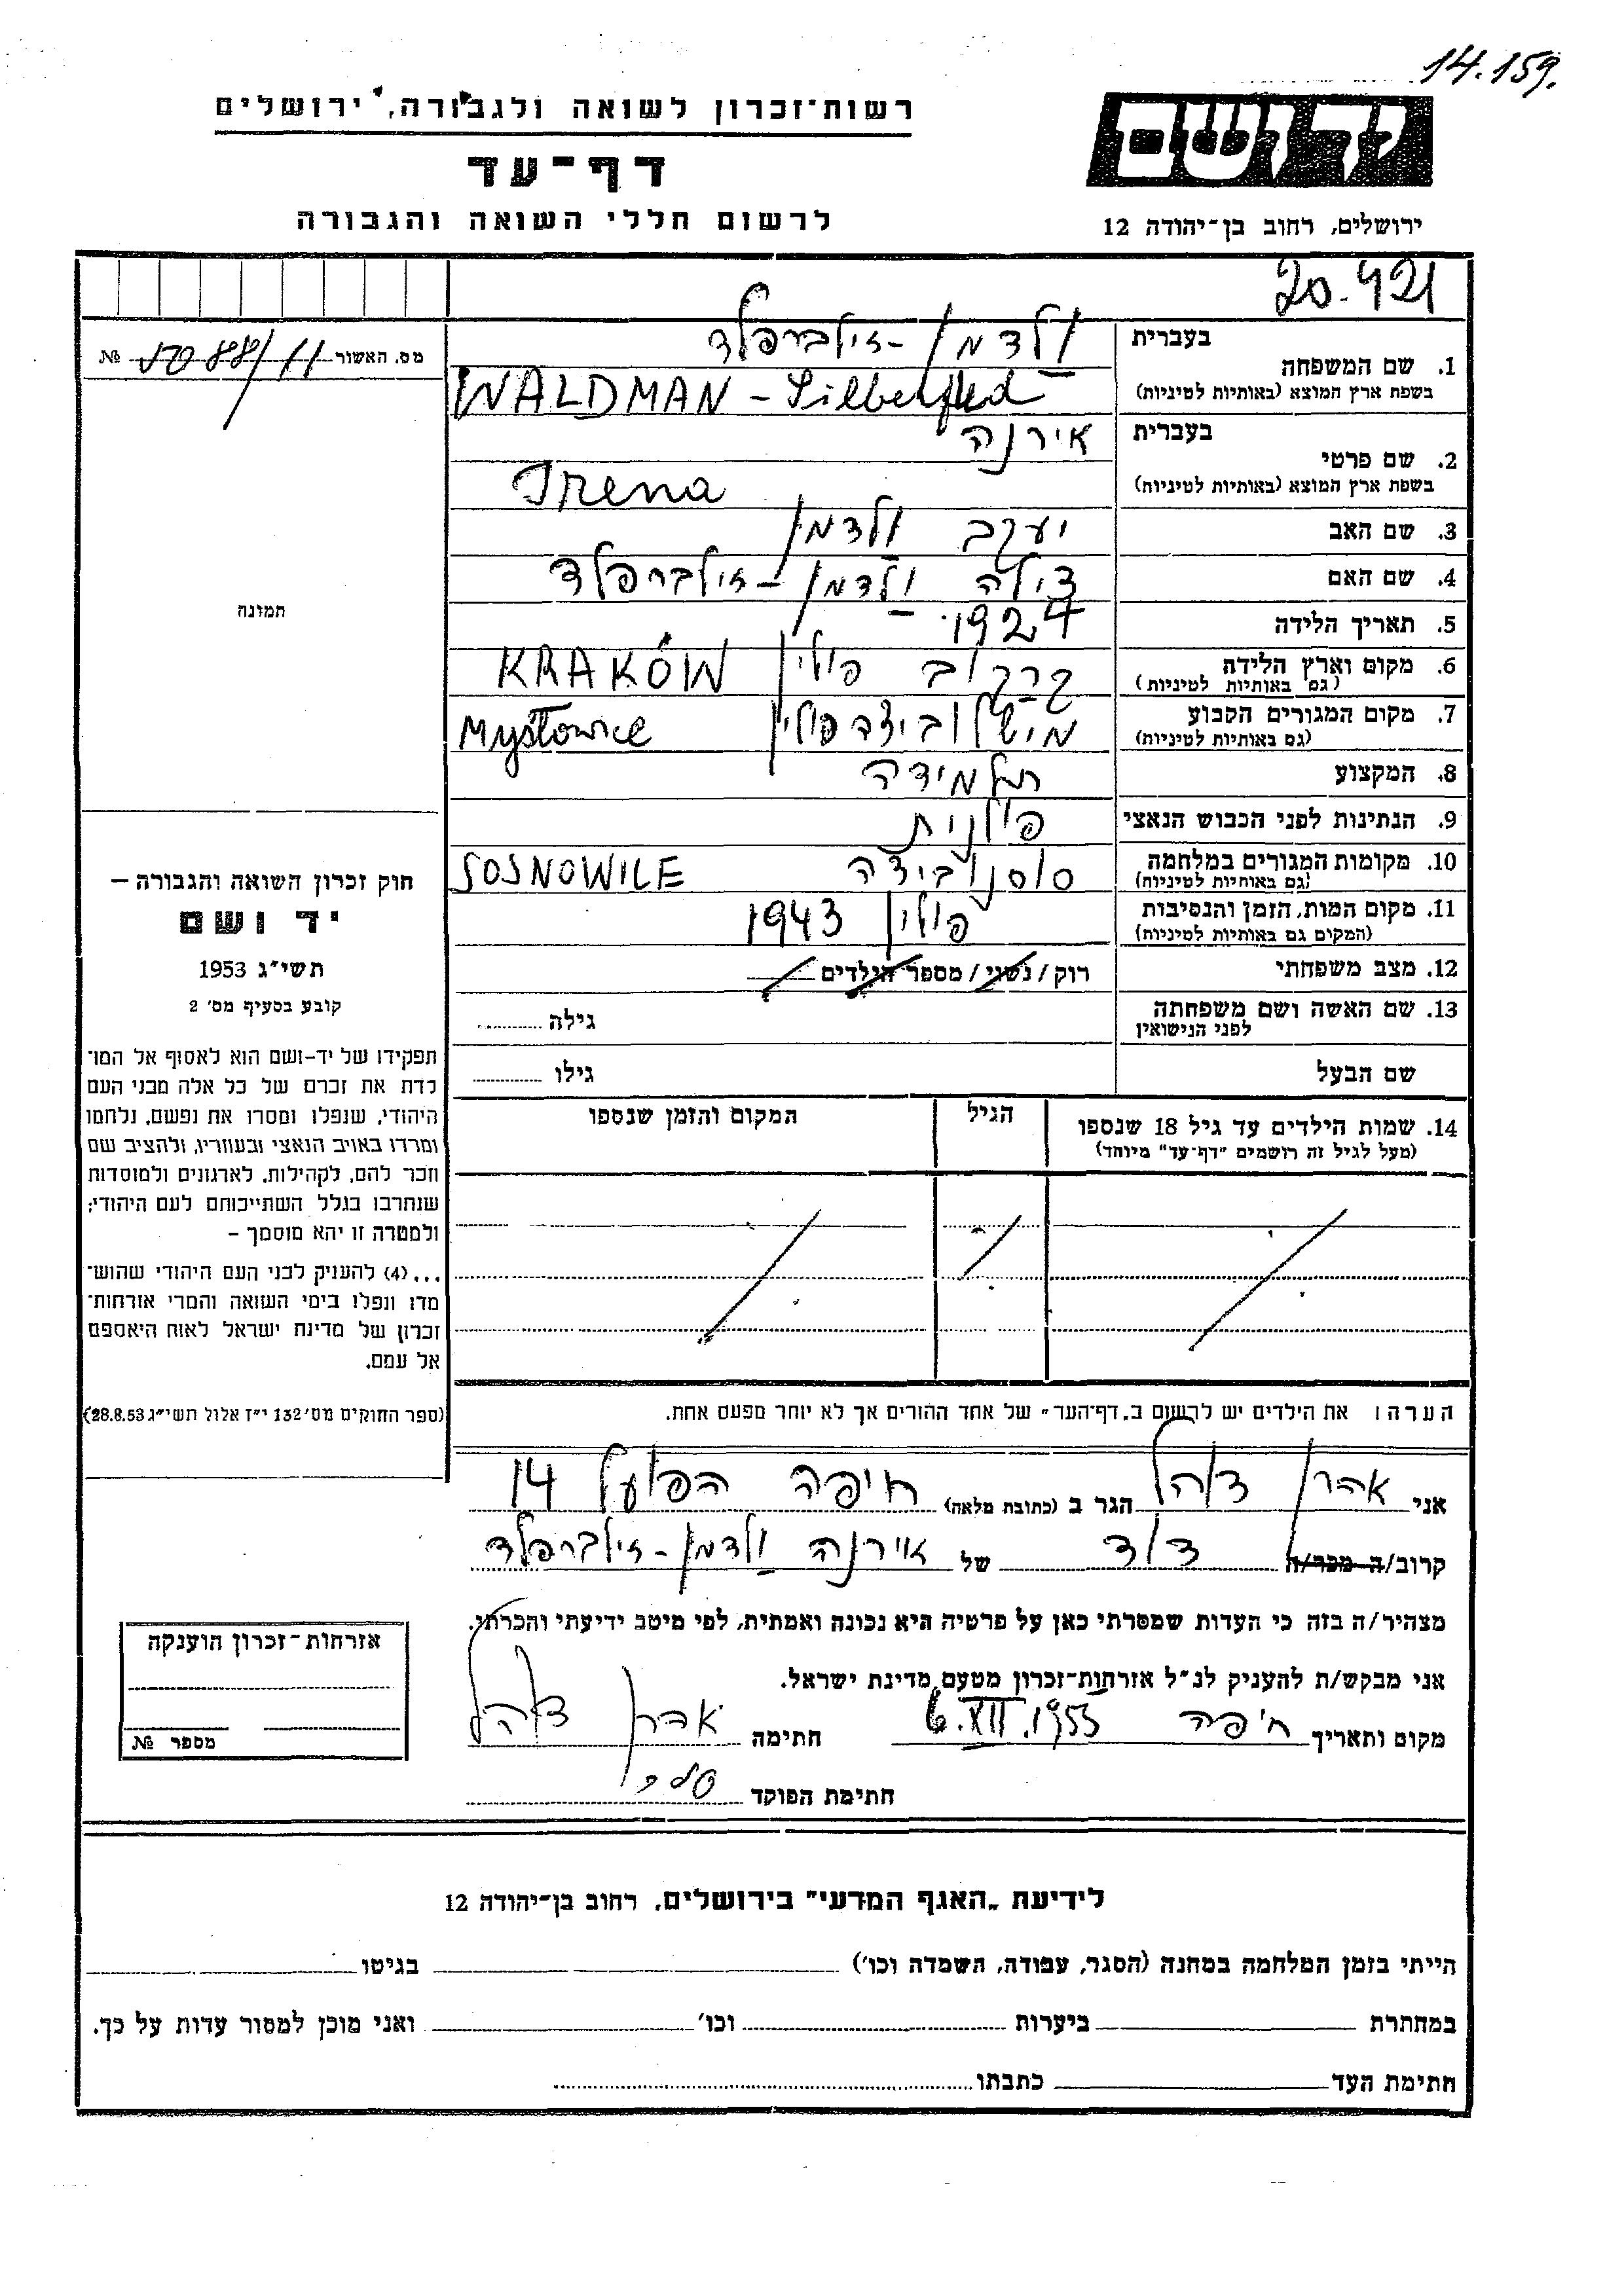 14.159.
רשות־זכרון לשואה ולגבורה, ירושלים
דף־עד
לרשום חללי השואה והגבורה
ידושם
ירושלים, רחוב בן־יהודה 12
20.421
מס. האשור № 5088/11
תמונה
1. שם המשפחה בעברית ולדמן - זילברפלד
בשפת ארץ המוצא (באותיות לטיניות) WALDMAN - Silberfled
2. שם פרטי בעברית אירנה
בשפת ארץ המוצא (באותיות לטיניות) Irena
3. שם האב יעקב ולדמן
4. שם האם צילה ולדמן - זילברפלד
5. תאריך הלידה 1924
6. מקום וארץ הלידה קרקוב פולין KRAKÓW
(גם באותיות לטיניות)
7. מקום המגורים הקבוע מישלוביצה פולין Mysłowice
(גם באותיות לטיניות)
8. המקצוע תלמידה
9. הנתינות לפני הכבוש הנאצי פולנית
10. מקומות המגורים במלחמה סוסנוביצה SOSNOWILE
(גם באותיות לטיניות)
11. מקום המות, הזמן והנסיבות פולין 1943
(המקום גם באותיות לטיניות)
12. מצב משפחתי רוק / נשוי / מספר הילדים
13. שם האשה ושם משפחתה גילה
לפני הנישואין
שם הבעל גילו
14. שמות הילדים עד גיל 18 שנספו הגיל המקום והזמן שנספו
(מעל לגיל זה רושמים "דף־עד" מיוחד)
חוק זכרון השואה והגבורה –
יד ושם
תשי"ג 1953
קובע בסעיף מס' 2
תפקידו של יד-ושם הוא לאסוף אל המו־
לדת את זכרם של כל אלה מבני העם
היהודי, שנפלו ומסרו את נפשם, נלחמו
ומרדו באויב הנאצי ובעוזריו, ולהציב שם
וזכר להם, לקהילות, לארגונים ולמוסדות
שנחרבו בגלל השתייכותם לעם היהודי;
ולמטרה זו יהא מוסמך –
...(4) להעניק לבני העם היהודי שהוש־
מדו ונפלו בימי השואה והמרי אזרחות־
זכרון של מדינת ישראל לאות היאספם
אל עמם.
(ספר החוקים מס' 132 י"ז אלול תשי"ג 28.8.53)
הערה: את הילדים יש לרשום ב„דף־העד" של אחד ההורים אך לא יותר מפעם אחת.
אני אהרן הגר ב (כתובת מלאה) חיפה הפועל 14
קרוב/ה מכר/ה דוד של אירנה ולדמן - זילברפלד
מצהיר/ה בזה כי העדות שמסרתי כאן על פרטיה היא נכונה ואמתית, לפי מיטב ידיעתי והכרתי.
אני מבקש/ת להעניק לנ"ל אזרחות־זכרון מטעם מדינת ישראל.
מקום ותאריך חיפה 6.XII.1955 חתימה אהרן
חתימת הפוקד
אזרחות־זכרון הוענקה
מספר №
לידיעת „האגף המדעי" בירושלים, רחוב בן־יהודה 12
הייתי בזמן המלחמה במחנה (הסגר, עבודה, השמדה וכו') בגיטו
במחתרת ביערות וכו' ואני מוכן למסור עדות על כך.
חתימת העד כתבתו